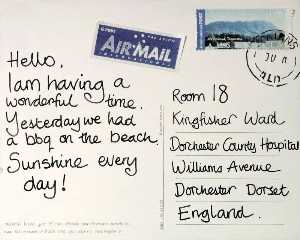 Hello,
I am having a
wonderful time.
Yesterday we had
a bbq on the beach.
Sunshine every
day!
AIR MAIL
Room 18
Kingfisher Ward
Dorchester County Hospital
Williams Avenue
Dorchester Dorset
England.